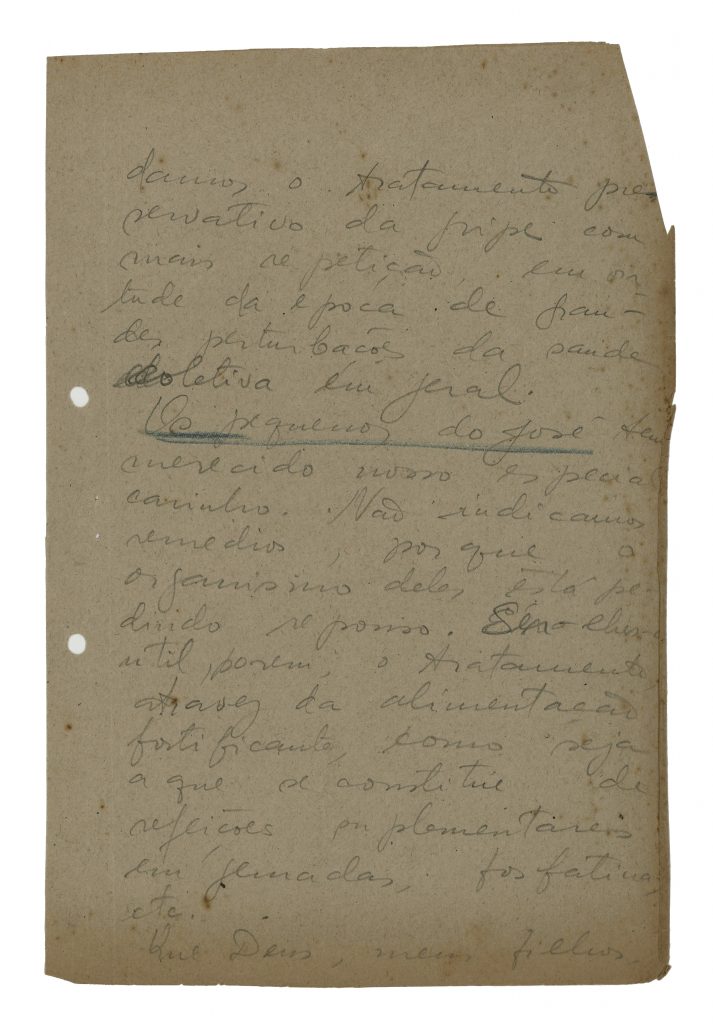 damos o tratamento pre-
servativo da gripe com
mais repetição, em vir-
tude da epoca de gran-
des perturbações da saude
coletiva em geral.
Os pequenos do José tem
merecido nosso especial
carinho. Não indicamos
remedios, porque o
organismo deles está pe-
dindo repouso. Ser-lhes-á
util, porem, o tratamento,
atravez da alimentação
fortificante, como seja
a que se constitue de
refeições suplementares
em gemadas, fosfatina,
etc.
Que Deus, meus filhos,